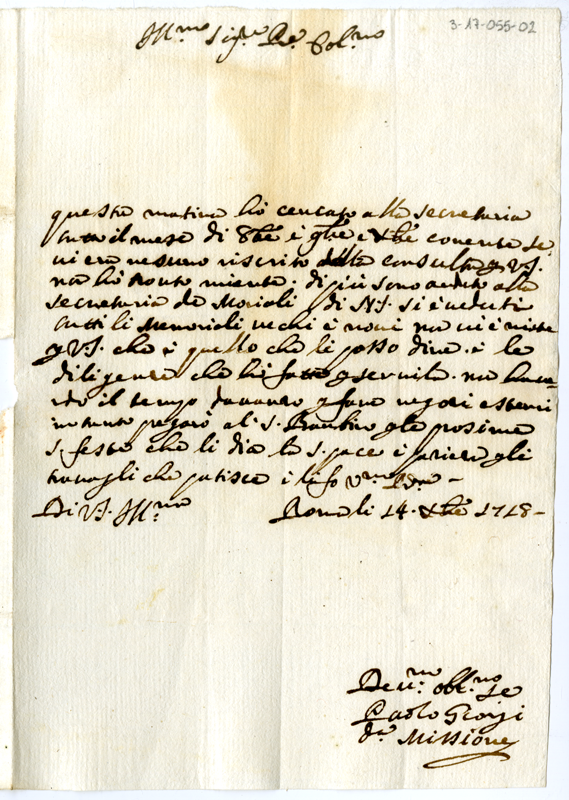 3-17-055-02
Ill.mo Sig.re P.e Col.mo
questa matina hò cercato alla secretaria
tutto il mese di 8bre è 9bre e Xbre corente se
vi era nessuno riscrito della consulta V.S.
no hò trovato niente. di più sono andato alla
secretaria de Moriali di N.S. si è veduti
tutti li Memoriali vechi è novi no vi è niente
V.S. che è quello che li posso dire. è le
diligenze che hò fatto servirla. no
il tempo fare negozi
in tanto pregarò al S. Bambino gle prosime
S. feste che li dia la S. pace i gli
travagli che patisce è li fo
Di V.S. Ill.ma Roma li 14. Xbre 1718
Dev.mo obl.mo Se
Paolo Giorgi
d.a Missione